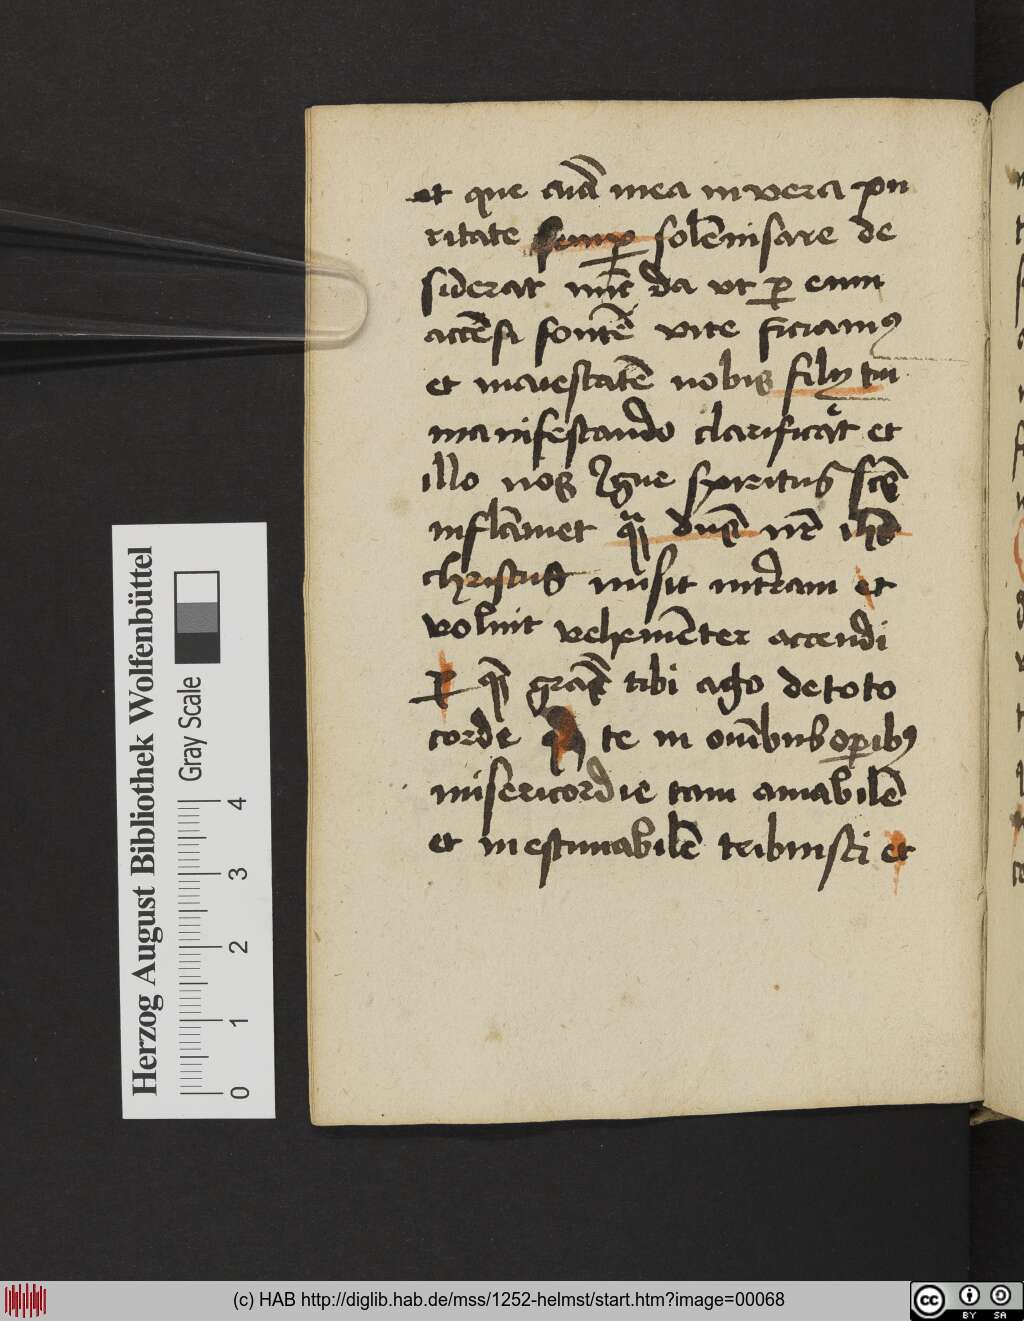 et que aīa mea in vera pu
ritate semp solēnisare de
siderat nūc da ut p eum
accēsi fontē vite siciamꝰ
et maiestatē nobis filij tui
manifestando clarificat et
illo nos Igne spiritus scūs
inflāmet quē dūs nr̄ ihūs
christus misit in terram et
voluit vehemēter accendi
p quē graās tibi ago de toto
corde te in om̄ibus operibꝰ
misericordie tam amabilē
et inestimabilē tribuisti et
Herzog August Bibliothek Wolfenbüttel
Gray Scale
0 1 2 3 4
(c) HAB http://diglib.hab.de/mss/1252-helmst/start.htm?image=00068
cc BY SA